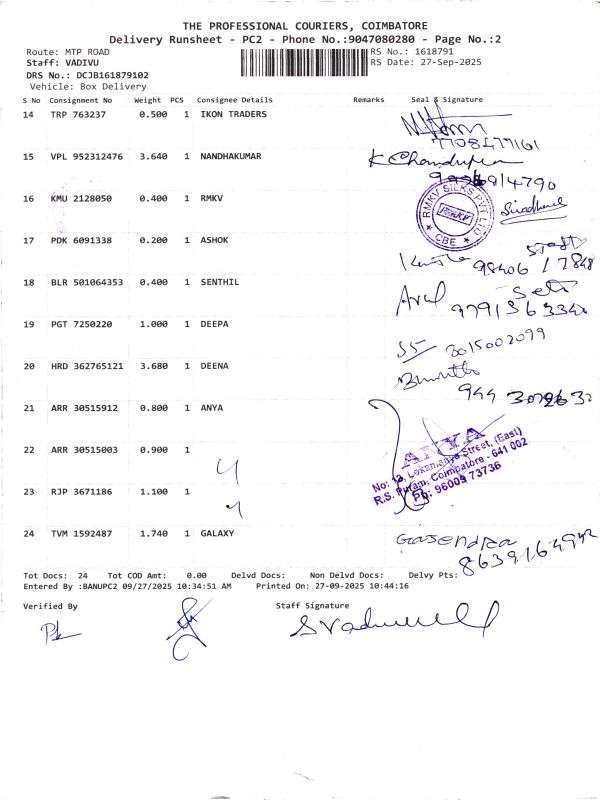 THE PROFESSIONAL COURIERS, COIMBATORE
Delivery Runsheet - PC2 - Phone No.:9047080280 - Page No.:2
Route: MTP ROAD RS No.: 1618791
Staff: VADIVU RS Date: 27-Sep-2025
DRS No.: DCJB161879102
Vehicle: Box Delivery
S No Consignment No Weight PCS Consignee Details Remarks Seal & Signature
14 TRP 763237 0.500 1 IKON TRADERS
7708477161
15 VPL 952312476 3.640 1 NANDHAKUMAR
16 KMU 2128050 0.400 1 RMKV
RMKV SILKS PVT LTD
RMKV
CBE
17 PDK 6091338 0.200 1 ASHOK
98406 17848
18 BLR 501064353 0.400 1 SENTHIL
Arul
19 PGT 7250220 1.000 1 DEEPA
3015002099
20 HRD 362765121 3.680 1 DEENA
21 ARR 30515912 0.800 1 ANYA
ANYA
22 ARR 30515003 0.900 1
R.S. Puram, Coimbatore - 641 002
Ph: 96009 73736
23 RJP 3671186 1.100 1
24 TVM 1592487 1.740 1 GALAXY
Gajendra
Tot Docs: 24 Tot COD Amt: 0.00 Delvd Docs: Non Delvd Docs: Delvy Pts:
Entered By :BANUPC2 09/27/2025 10:34:51 AM Printed On: 27-09-2025 10:44:16
Verified By Staff Signature